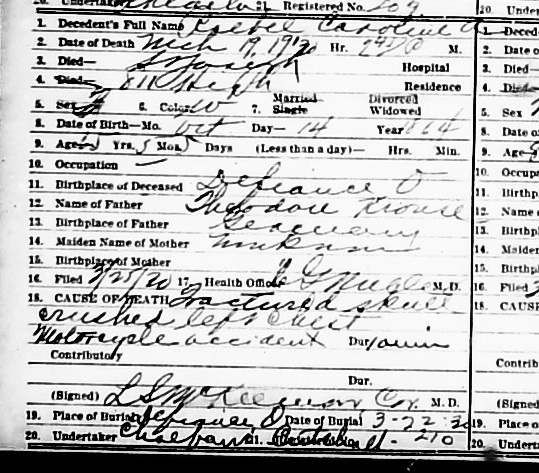 20. Undertaker 21. Registered No. 209 20. Under
1. Decedent's Full Name Caroline 1. Deced
2. Date of Death Mch 19, 1920 Hr. M. 2. Date o
3. Died— St Joseph Hospital 3. Died—
4. Died— 811 High Residence 4. Died—
5. Sex 6. Color W 7. Married Single Divorced Widowed 5. Sex
8. Date of Birth—Mo. Oct Day— 14 Year 1864 8. Date o
9. Age Yrs. 5 Mos. 5 Days (Less than a day)— Hrs. Min. 9. Age
10. Occupation — 10. Occupa
11. Birthplace of Deceased Defiance O 11. Birthp
12. Name of Father Theodore Krouse 12. Name o
13. Birthplace of Father Germany 13. Birthpl
14. Maiden Name of Mother Unknown 14. Maiden
15. Birthplace of Mother 15. Birthpl
16. Filed 3/25/20 17. Health Officer M. D. 16. Filed
18. CAUSE OF DEATH Fractured skull 18. CAUSE
crushed left chest
Motorcycle accident Dur.
Contributory Contrib
Dur.
(Signed) Cor. M. D. (Signed
19. Place of Burial Defiance O Date of Burial 3-22-20 19. Place
20. Undertaker 21. Registered No. 210 20. Under